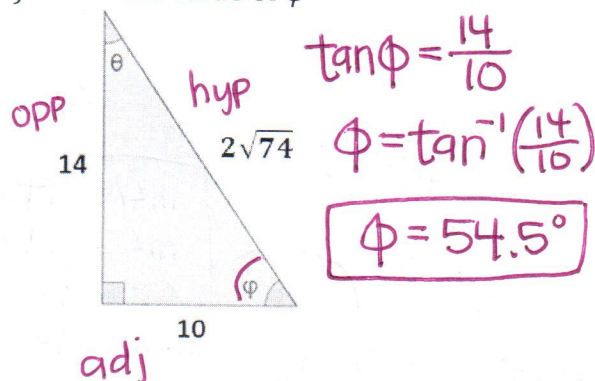 θ
opp
hyp
14
2√74
φ
10
adj
tanφ = 14/10
φ = tan⁻¹(14/10)
φ = 54.5°